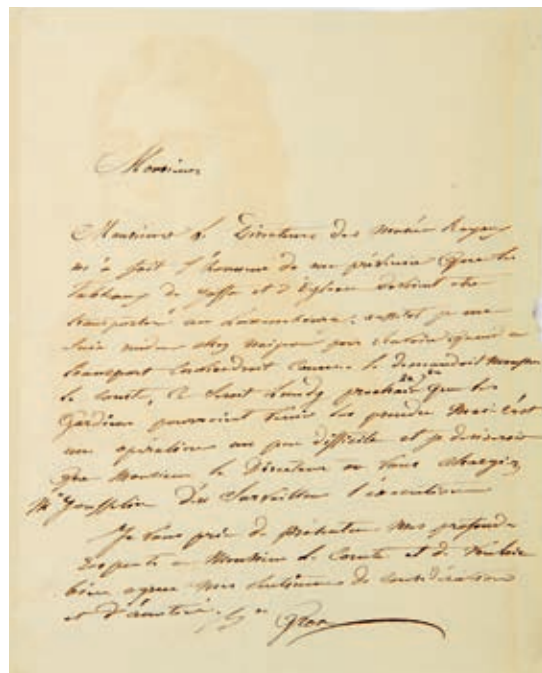 Monsieur
Monsieur le Directeur des musées Royaux
m'a fait l'honneur de me prévenir que les
tableaux de Jaffa et d'Eylau doivent être
transportés au Luxembourg; aussitôt je me
suis rendu chez pour savoir quand ce
transport comme le demandoit Monsieur
le Comte, ce seroit Lundy prochain que les
Gardiens pourroient venir les prendre mais c'est
une opération un peu difficile et je desirerois
que Monsieur le Directeur ou vous chargiez
Mr d'en surveiller l'exécution
Je vous prie de présenter mes profonds
respects à Monsieur le Comte et de vouloir
bien agréer mes sentimens de considération
et d'amitié. Gros